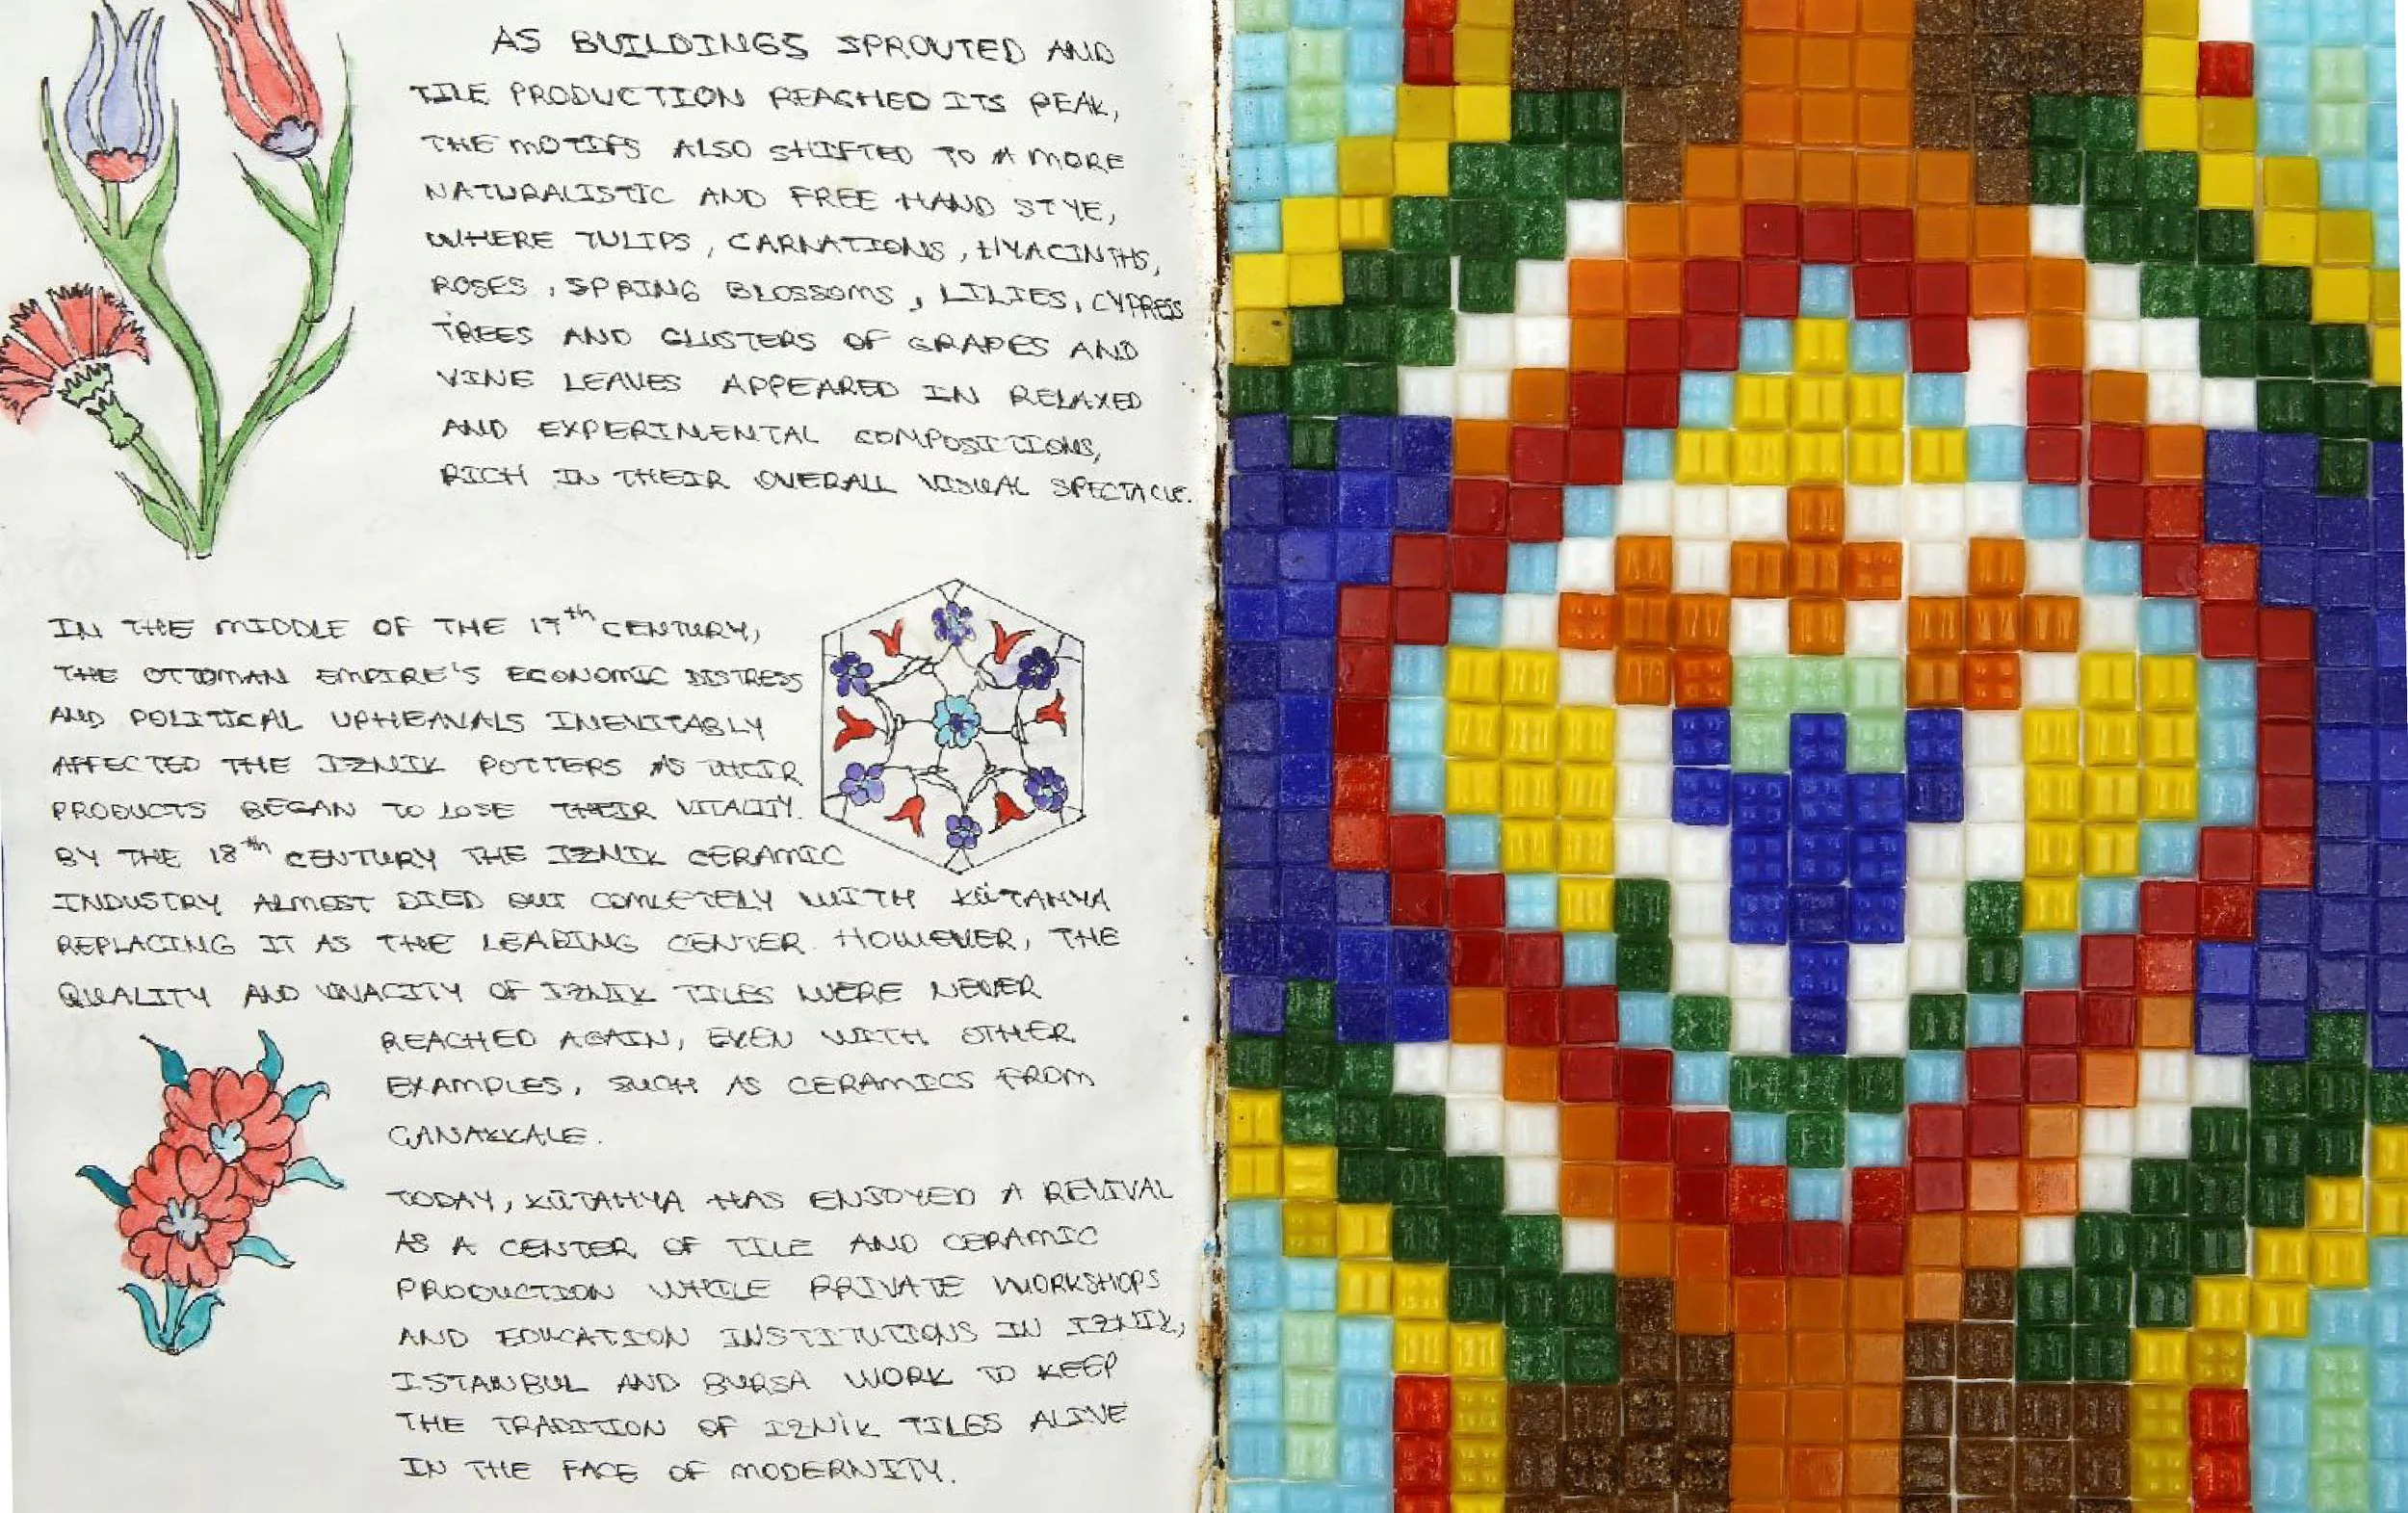 AS BUILDINGS SPROUTED AND
TILE PRODUCTION REACHED ITS PEAK,
THE MOTIFS ALSO SHIFTED TO A MORE
NATURALISTIC AND FREE HAND STYE,
WHERE TULIPS, CARNATIONS, HYACINTHS,
ROSES, SPRING BLOSSOMS, LILIES, CYPRESS
TREES AND CLUSTERS OF GRAPES AND
VINE LEAVES APPEARED IN RELAXED
AND EXPERIMENTAL COMPOSITIONS,
RICH IN THEIR OVERALL VISUAL SPECTACLE.
IN THE MIDDLE OF THE 17th CENTURY,
THE OTTOMAN EMPIRE'S ECONOMIC DISTRESS
AND POLITICAL UPHEAVALS INEVITABLY
AFFECTED THE IZNIK POTTERS AS THEIR
PRODUCTS BEGAN TO LOSE THEIR VITALITY.
BY THE 18th CENTURY THE IZNIK CERAMIC
INDUSTRY ALMOST DIED OUT COMLETELY WITH KÜTAHYA
REPLACING IT AS THE LEADING CENTER. HOWEVER, THE
QUALITY AND VIVACITY OF IZNIK TILES WERE NEVER
REACHED AGAIN, EVEN WITH OTHER
EXAMPLES, SUCH AS CERAMICS FROM
CANAKKALE.
TODAY, KÜTAHYA HAS ENJOYED A REVIVAL
AS A CENTER OF TILE AND CERAMIC
PRODUCTION WHILE PRIVATE WORKSHOPS
AND EDUCATION INSTITUTIONS IN IZNIK,
ISTANBUL AND BURSA WORK TO KEEP
THE TRADITION OF IZNİK TILES ALIVE
IN THE FACE OF MODERNITY.